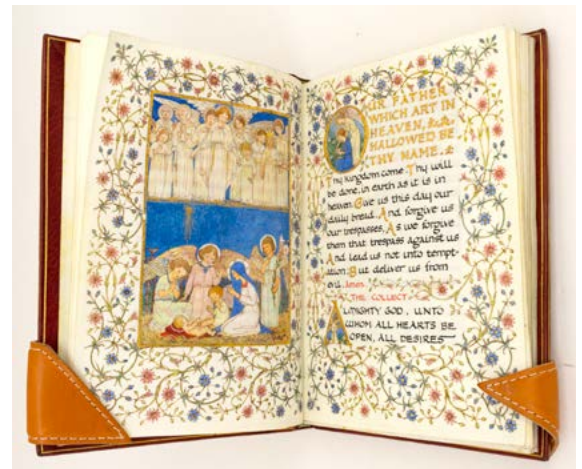 OUR FATHER
WHICH ART IN
HEAVEN,
HALLOWED BE
THY NAME.
Thy Kingdom come. Thy will
be done, in earth as it is in
heaven. Give us this day our
daily bread. And forgive us
our trespasses, As we forgive
them that trespass against us
And lead us not into tempt-
ation: But deliver us from
evil. Amen.
THE COLLECT
ALMIGHTY GOD, UNTO
WHOM ALL HEARTS BE
OPEN, ALL DESIRES